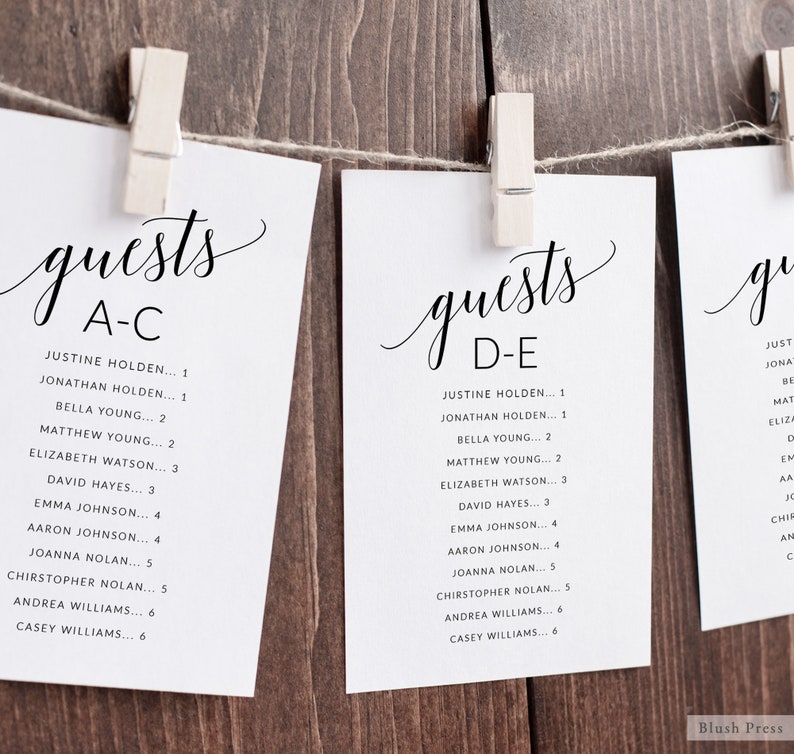 guests
A-C
JUSTINE HOLDEN... 1
JONATHAN HOLDEN... 1
BELLA YOUNG... 2
MATTHEW YOUNG... 2
ELIZABETH WATSON... 3
DAVID HAYES... 3
EMMA JOHNSON... 4
AARON JOHNSON... 4
JOANNA NOLAN... 5
CHIRSTOPHER NOLAN... 5
ANDREA WILLIAMS... 6
CASEY WILLIAMS... 6
guests
D-E
JUSTINE HOLDEN... 1
JONATHAN HOLDEN... 1
BELLA YOUNG... 2
MATTHEW YOUNG... 2
ELIZABETH WATSON... 3
DAVID HAYES... 3
EMMA JOHNSON... 4
AARON JOHNSON... 4
JOANNA NOLAN... 5
CHIRSTOPHER NOLAN... 5
ANDREA WILLIAMS... 6
CASEY WILLIAMS... 6
Blush Press